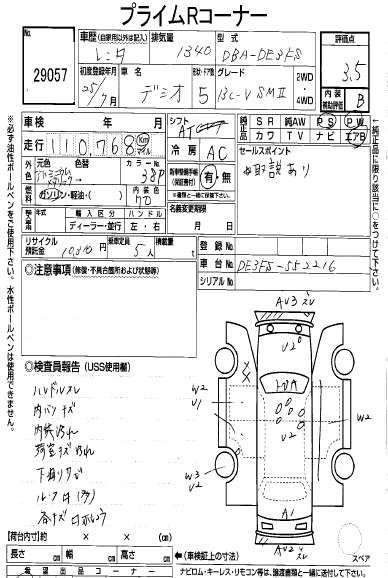 プライムRコーナー
No.
29057
車歴(自家用以外は記入)
レンタ
排気量
1340
型式
DBA-DE3FS
評価点
3.5
初度登録年月
25/7月
車名
デミオ
ドア
5
グレード
13C-V SMⅡ
2WD
4WD
内装補助評価
B
車検
年 月
走行
110768
Km
マイル
シフト
AT
冷房
AC
純正品
SR
純AW
PS
PW
カワ
TV
ナビ
エアB
セールスポイント
取説あり
外色
元色
アルミニウム
色替
カラーNo.
38P
燃料
ガソリン・軽油・( )
内装色
新車整備手帳(保証書付)
有・無
※書類と一緒に保管して下さい
名義変更期限
月 日
輸入車
年式
輸入区分
ディーラー・並行
ハンドル
左・右
リサイクル預託金
乗車定員
5人
積載量
登録No.
車台No.
DE3FS-552216
シリアルNo.
◎注意事項(修復・不具合箇所および状態等)
◎検査員報告(USS使用欄)
ハンドルスレ
内バンキズ
内装汚れ
荷室キズ汚れ
下廻りサビ
AV3
U2
W2
U1
U2
W3
U2
A1
AU2
スペア
【荷台内寸】
× ×
cm
長さ
cm
幅
cm
高さ
cm
(車検証上の寸法)
希望出品コーナー
ナビロム・キーレス・リモコン等は、譲渡書類と一緒に送付して下さい。
※必ず油性ボールペンをご使用下さい。水性ボールペンは使用できません。